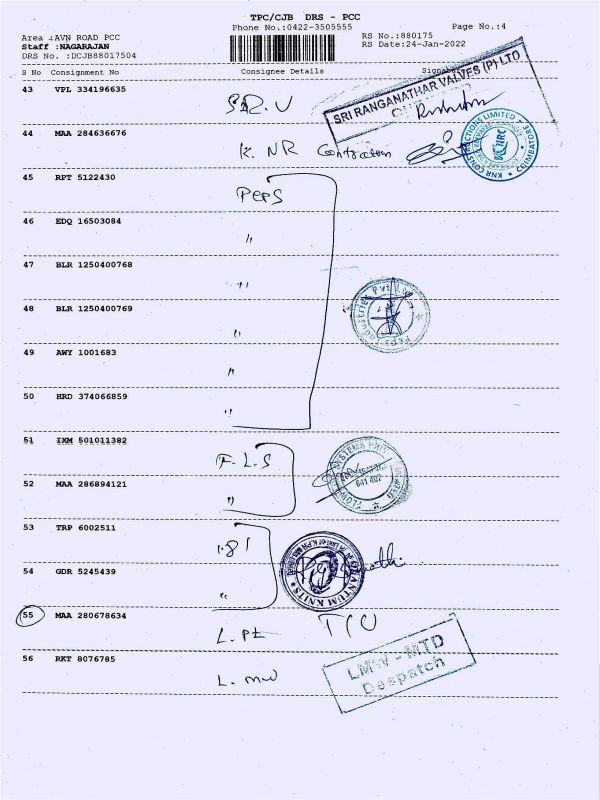 TPC/CJB DRS - PCC
Phone No.:0422-3505555 Page No.:4
Area :AVN ROAD PCC RS No.:880175
Staff :NAGARAJAN RS Date:24-Jan-2022
DRS No. :DCJB88017504
S No Consignment No Consignee Details
SRI RANGANATHAR VALVES (P) LTD
43 VPL 334196635
44 MAA 284636676
K. NR
KNR CONSTRUCTIONS LIMITED
45 RPT 5122430
Peps
46 EDQ 16503084
"
47 BLR 1250400768
"
48 BLR 1250400769
"
Peps Industries Pvt
49 AWY 1001683
"
50 HRD 374066859
"
51 IXM 501011382
F.L.S
52 MAA 286894121
"
641 407
53 TRP 6002511
54 GDR 5245439
"
QUANTUM KNITS
55 MAA 280678634
56 RKT 8076785
L. mw
LMW - MTD
Despatch